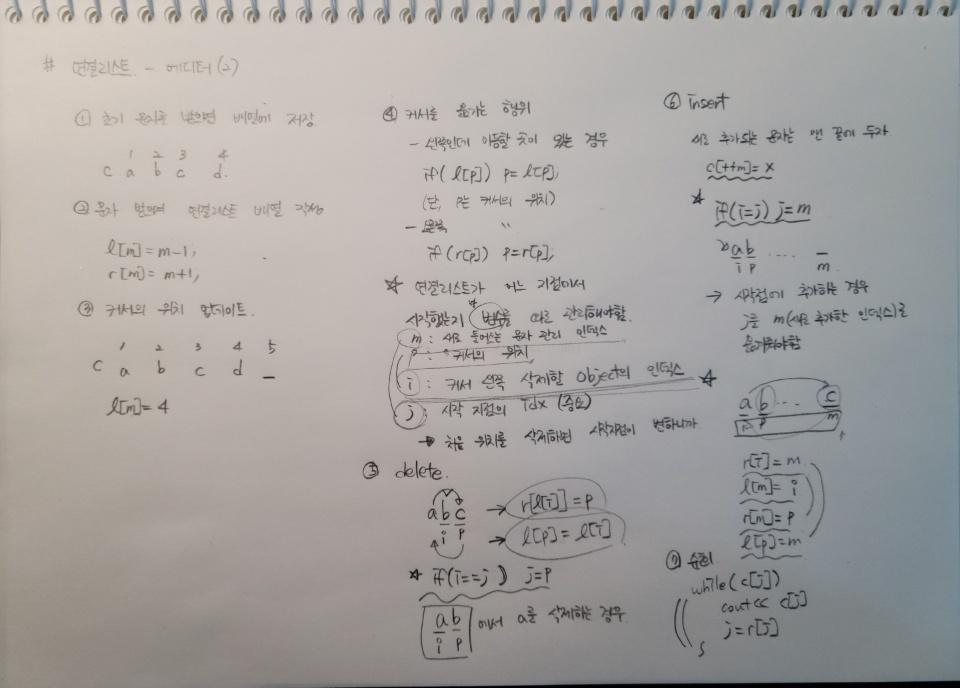 # 연결리스트 - 에디터(2)
① 초기 문자를 받으면 배열에 저장
1 2 3 4
c a b c d
② 문자 받으며 연결리스트 배열 작성
l[m] = m-1;
r[m] = m+1;
③ 커서의 위치 업데이트.
1 2 3 4 5
c a b c d _
l[m] = 4
④ 커서를 옮기는 행위
- 왼쪽인데 이동할 곳이 있는 경우
if( l[p]) p= l[p];
(단, p는 커서의 위치)
- 오른쪽 "
if(r[p]) p=r[p];
☆ 연결리스트가 어느 지점에서
시작했는지 변수를 따로 관리해야함.
m : 새로 들어오는 문자 관리 인덱스
p : 커서의 위치
i : 커서 왼쪽 삭제할 object의 인덱스 ☆
j : 시작 지점의 Idx (중요)
→ 처음 위치를 삭제하면 시작지점이 변하니까
⑤ delete.
a b c
i p
→ r[l[i]] = p
→ l[p] = l[i]
☆ if(i==j) j=p
a b 에서 a를 삭제하는 경우
i p
⑥ insert
새로 추가되는 문자는 맨 끝에 두자
c[++m] = x
☆ if(i=j) j=m
a b .... _
i p m
→ 시작점에 추가하는 경우
j를 m(새로 추가한 인덱스)로
옮겨줘야함
a b ... c
i p m
r[i] = m
l[m] = i
r[m] = p
l[p] = m
⑦ 순회
while( c[j])
cout << c[j]
j = r[j]